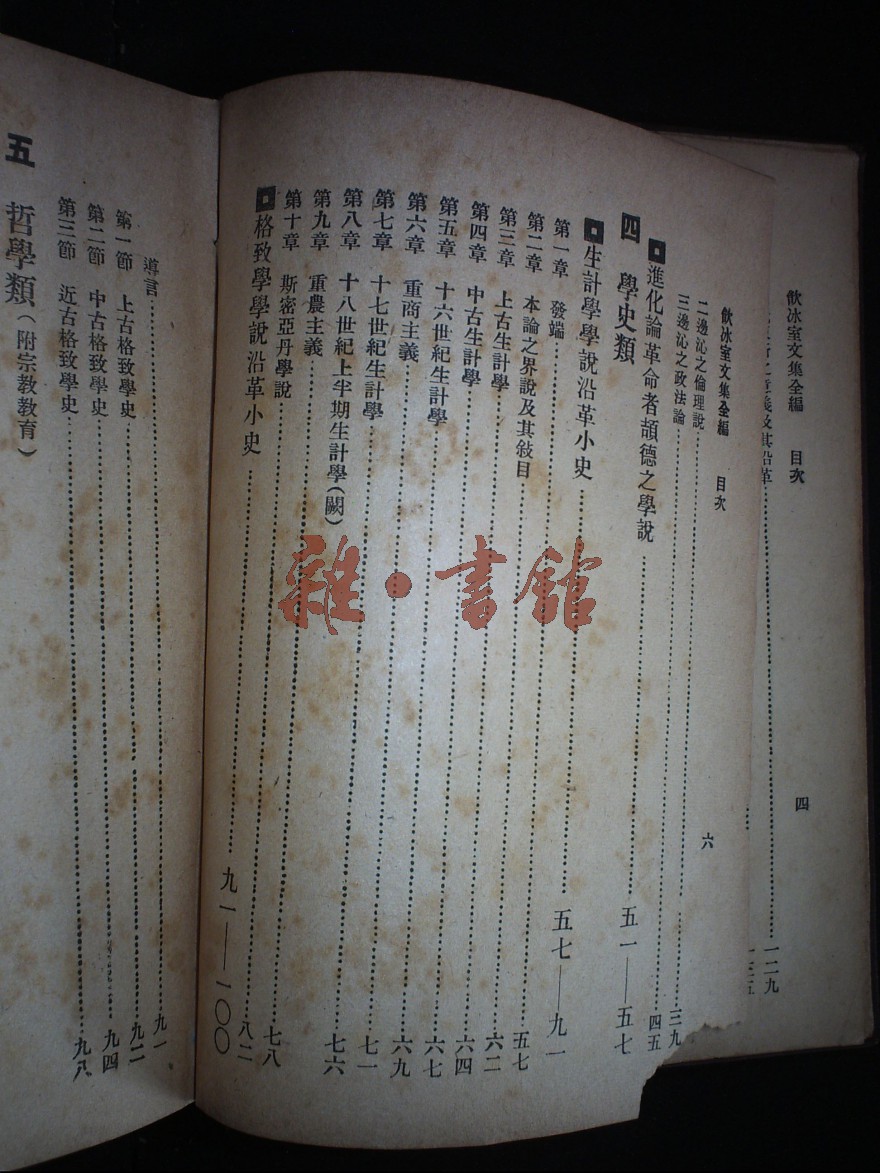 飲冰室文集全編 目次 四
義及其沿革……一二九
飲冰室文集全編 目次 六
二 邊沁之倫理說……三九
三 邊沁之政法論……四五
進化論革命者頡德之學說……五一——五七
四 學史類
生計學學說沿革小史……五七——九一
第一章 發端……五七
第二章 本論之界說及其敍目……六二
第三章 上古生計學……六四
第四章 中古生計學……六七
第五章 十六世紀生計學……六九
第六章 重商主義……七一
第七章 十七世紀生計學……七六
第八章 十八世紀上半期生計學(闕)
第九章 重農主義……七八
第十章 斯密亞丹學說……八二
格致學學說沿革小史……九一——一〇〇
導言……九一
第一節 上古格致學史……九二
第二節 中古格致學史……九四
第三節 近古格致學史……九八
五 哲學類(附宗教教育)
雜·書舘